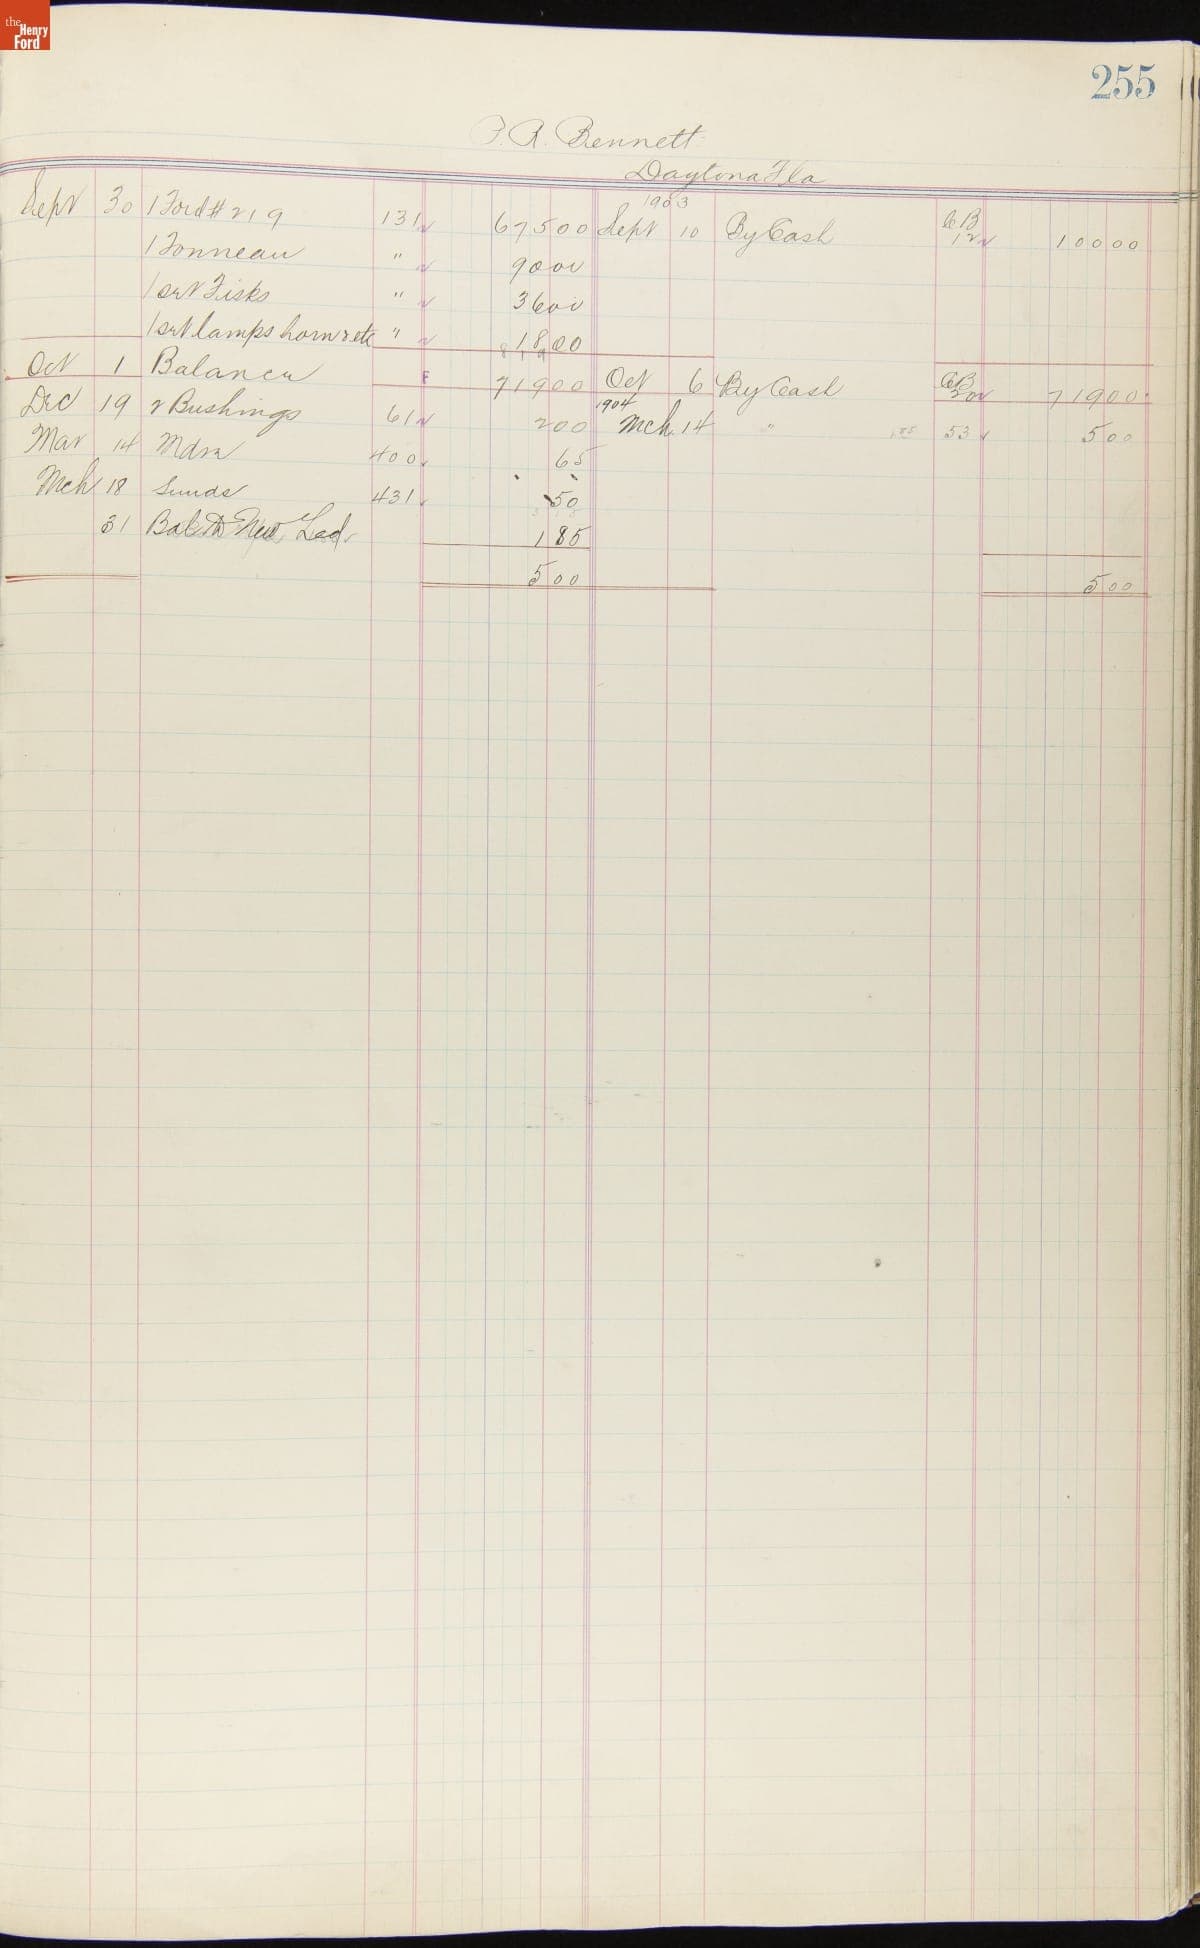 the Henry Ford
255
P. A. Bennett
Daytona Fla
1903
Sept 30 1 Ford # 219 131 675 00 Sept 10 By Cash CB 12 100 00
1 Tonneau " 90 00
1 set Fisks " 36 00
1 set lamps horn & etc " 18 00
819
Oct 1 Balance F 719 00 Oct 6 By Cash CB 20 719 00
1904
Dec 19 2 Bushings 61 2 00 Mch 14 " 1 85 53 5 00
Mar 14 Mdse 400 65
Mch 18 Sunds 431 50
3 15
31 Bal to New Led. 1 85
5 00 5 00